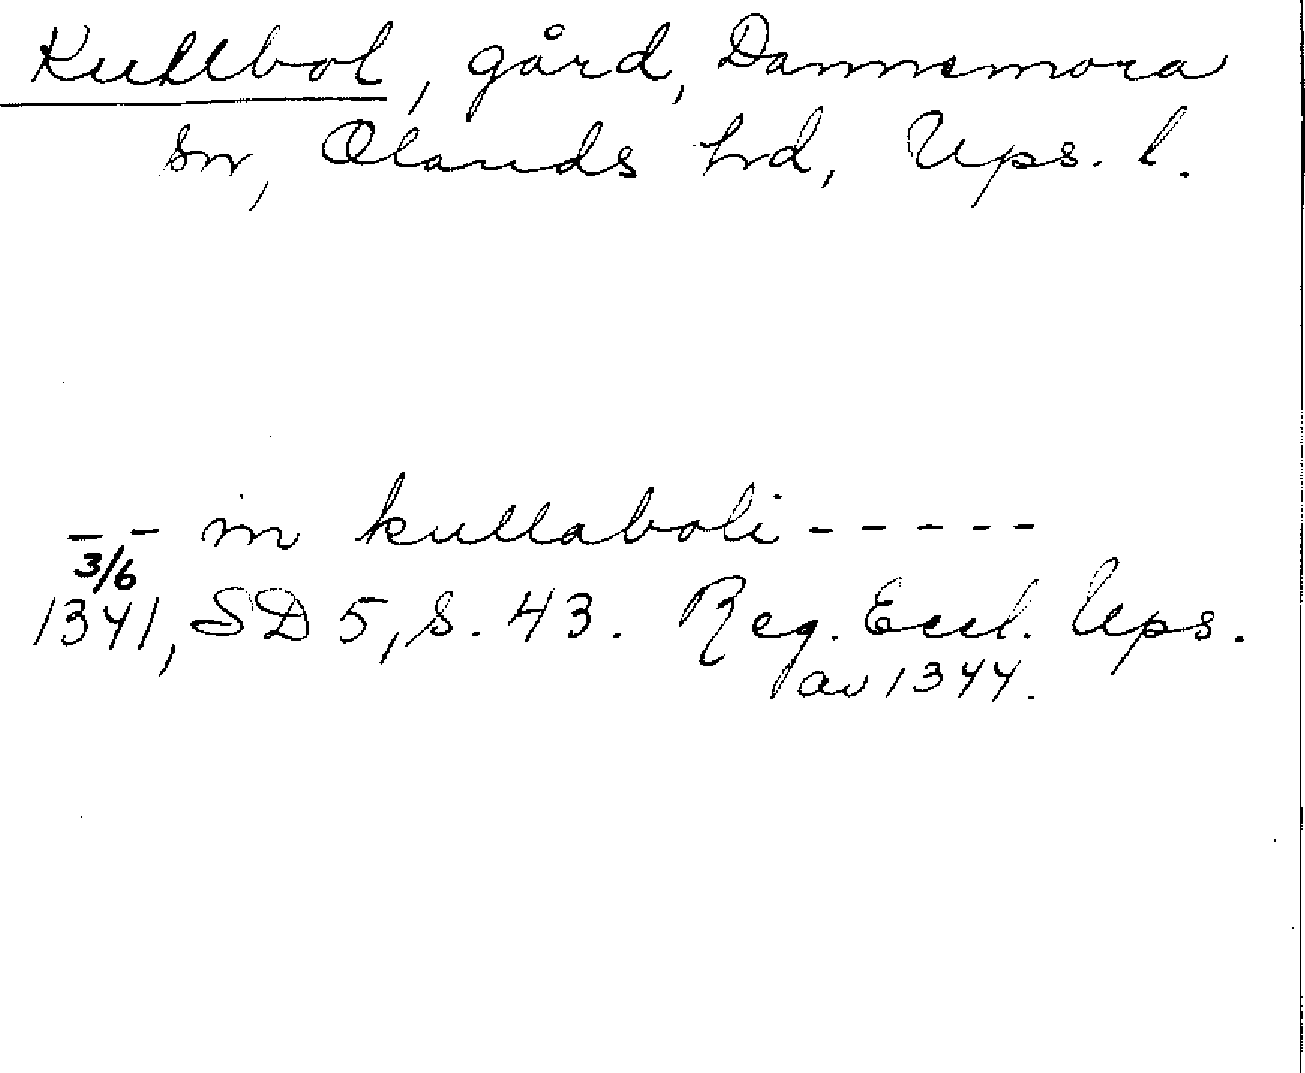 Kullbol, gård, Dannemora
sn, Olands hd, Ups. l.
-- in kullaboli-----
3/6
1341, SD 5, s. 43. Reg. Eccl. Ups.
av 1344.